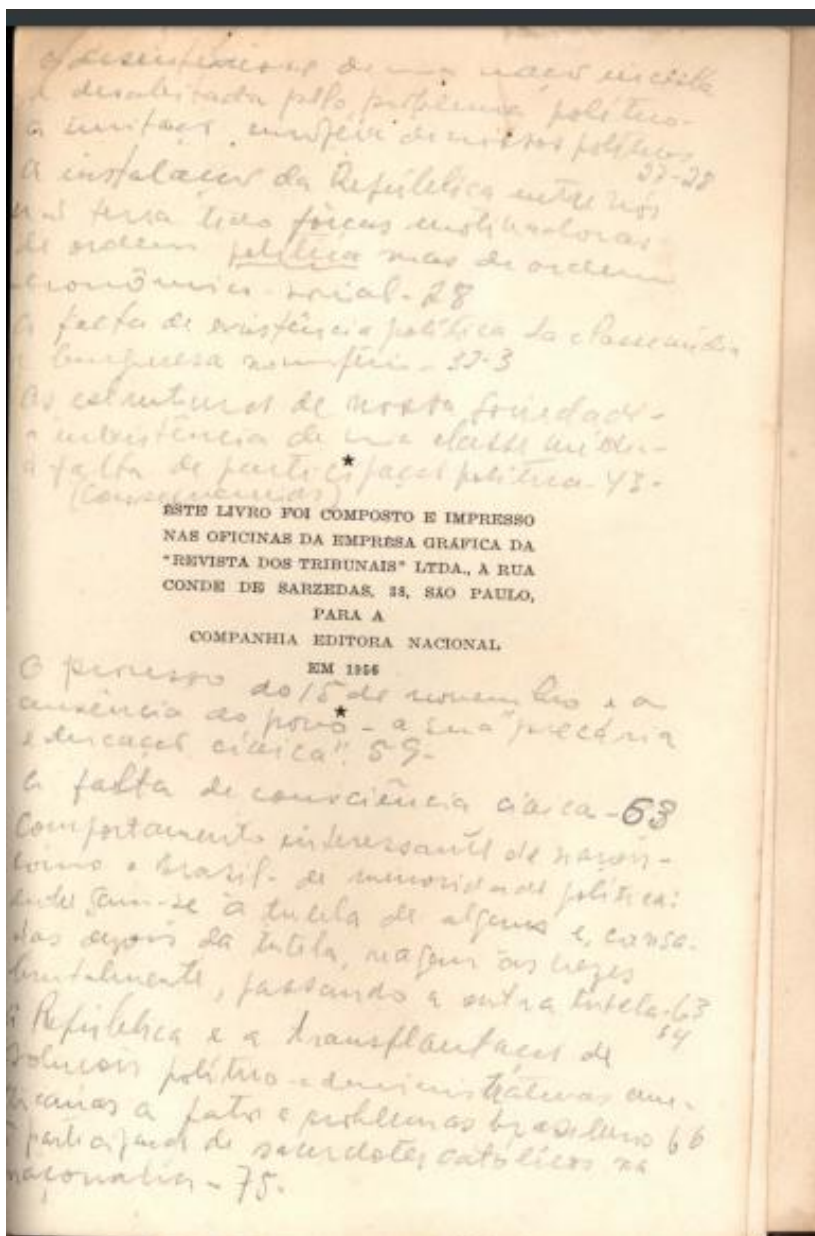 O desinteresse de uma nação inculta
e desabitada pelo problema político-
a imitação, murfeia de nossos políticos
27-28
A instalação da República entre nós
não teria tido forças motivadoras
de ordem política mas de ordem
econômico-social-28
a falta de existência política da classe média
e burguesa no império-32-3
as estruturas de nossa sociedade-
a inexistência de uma classe média-
a falta de participação política-43-
(consequências)
★
ÊSTE LIVRO FOI COMPOSTO E IMPRESSO
NAS OFICINAS DA EMPRÊSA GRÁFICA DA
"REVISTA DOS TRIBUNAIS" LTDA., A RUA
CONDE DE SARZEDAS, 38, SÃO PAULO,
PARA A
COMPANHIA EDITORA NACIONAL
EM 1956
★
O processo do 15 de novembro e a
ausência do povo - a sua "precária
educação cívica". 59-
a falta de consciência cívica-63
Comportamento interessante de nações-
como o Brasil- de menoridade política:
-se à tutela de alguns e, cansa-
das depois da tutela, reagem às vezes
brutalmente, passando a outra tutela-63
64
a República e a transplantação de
soluções político-administrativas ame-
ricanas a fatos e problemas brasileiros 66
a participação de sacerdotes católicos na
maçonaria-75-